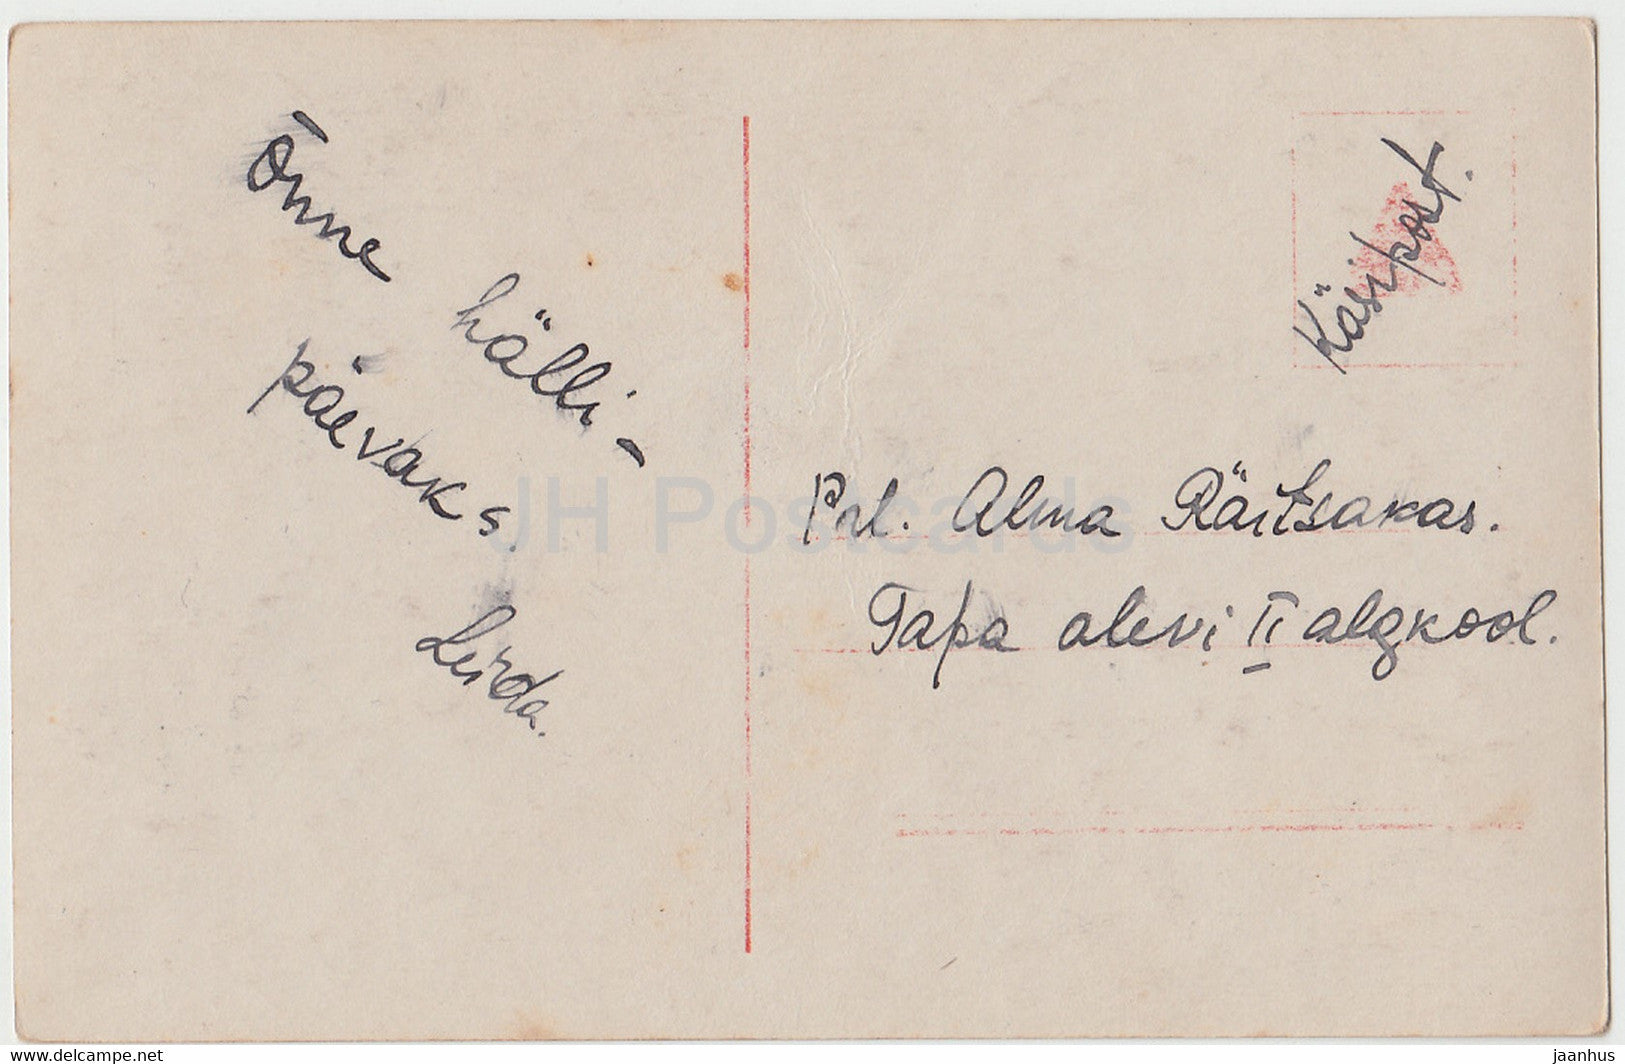 Õnne hälli-
päevaks.
Käsipost.
Prl. Alma Räitsakas.
Tapa alevi II algkool.
JH Postcards
www.delcampe.net
jaanhus